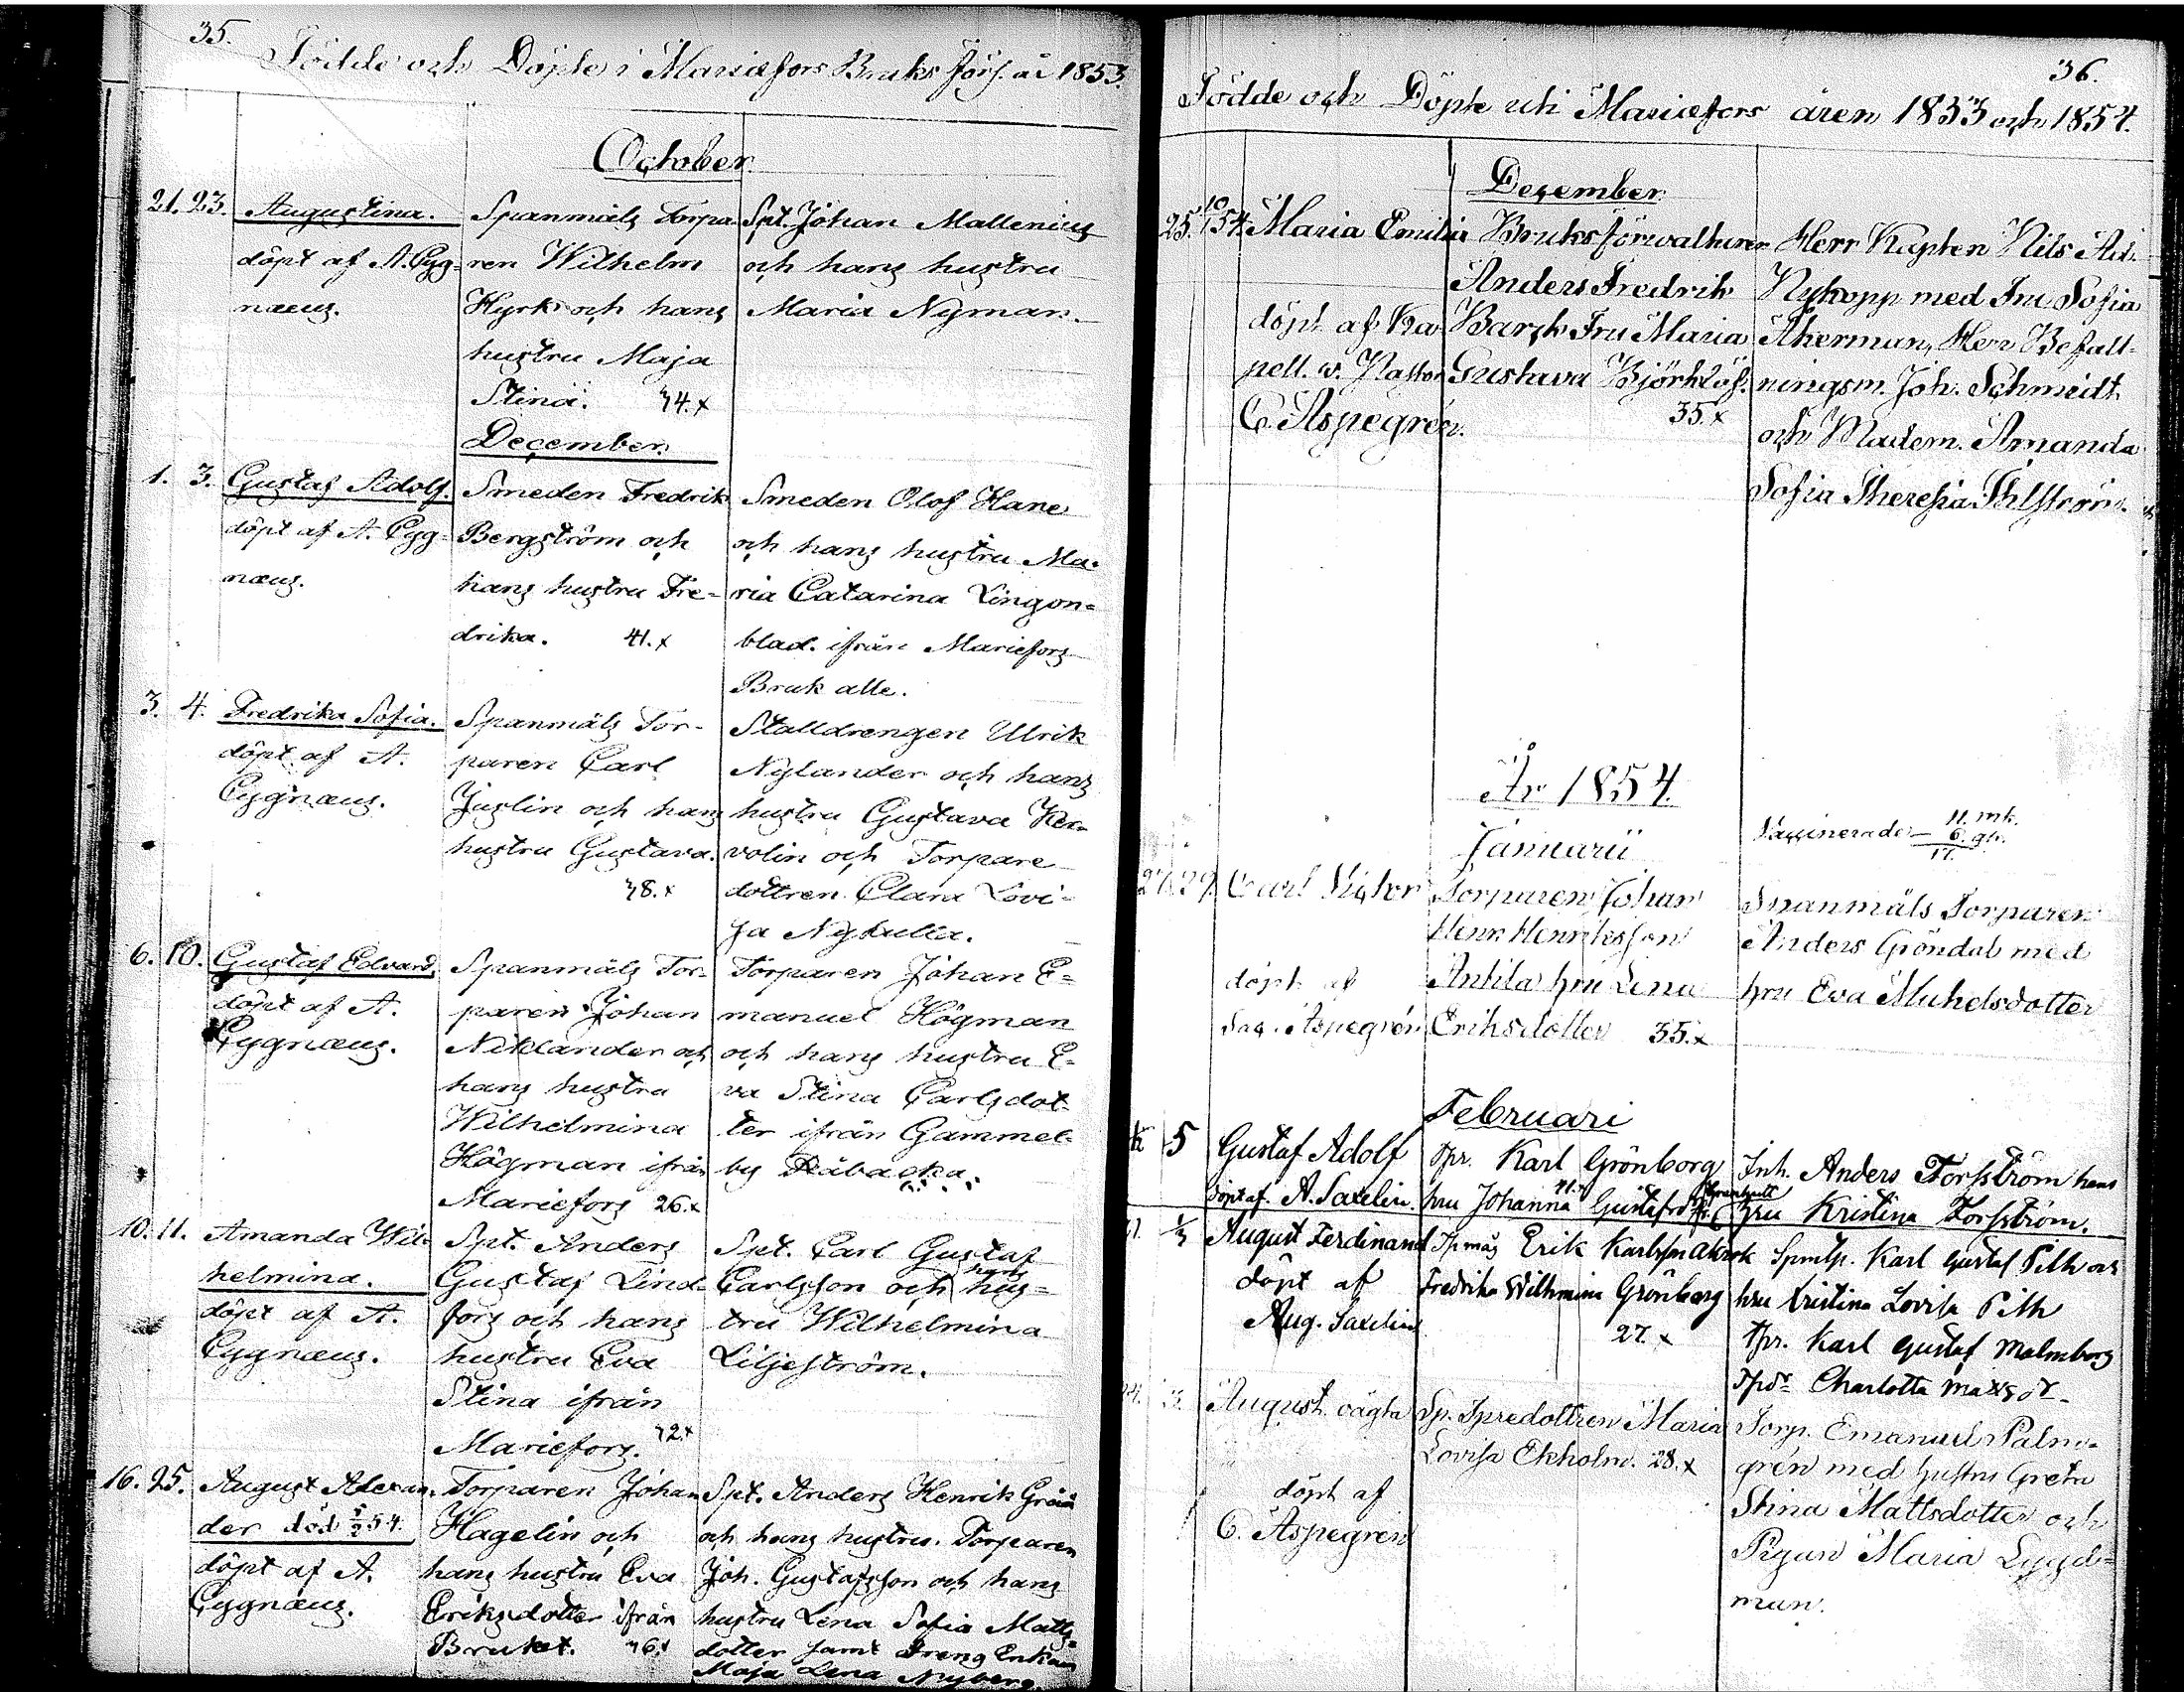 35.
Födde och Döpte i Mariæfors Bruks förs. år 1853.
October.
21. 23. Augustina.
döpt af A. Cyg-
næus.
Spanmåls Torpa-
ren Wilhelm
Hyrk och hans
hustru Maja
Stina. 34.x
Spt. Johan Mallenius
och hans hustru
Maria Nyman.
December.
1. 3. Gustaf Adolf.
döpt af A. Cyg-
næus.
Smeden Fredrik
Bergström och
hans hustru Fre-
drika. 41.x
Smeden Olof Hane
och hans hustru Ma-
ria Catarina Lingon-
blad. ifrån Mariefors
Bruk alle.
3. 4. Fredrika Sofia.
döpt af A.
Cygnæus.
Spanmåls Tor-
paren Carl
Juslin och hans
hustru Gustava.
38.x
Stalldrengen Ulrik
Nylander och hans
hustru Gustava Her-
volin och Torpare
dottren Clara Lovi-
sa Nykulla.
6. 10. Gustaf Edvard.
döpt af A.
Cygnæus.
Spanmåls Tor-
paren Johan
Niklander och
hans hustru
Wilhelmina
Högman ifrån
Mariefors 26.x
Torparen Johan E-
manuel Högman
och hans hustru E-
va Stina Carlsdot-
ter ifrån Gammel-
by Råbacka.
10. 11. Amanda Wil-
helmina.
döpt af A.
Cygnæus.
Spt. Anders
Gustaf Lind-
fors och hans
hustru Eva
Stina ifrån
Mariefors. 32x
Spt. Carl Gustaf
Carlsson och hans hus-
tru Wilhelmina
Liljeström.
16. 25. August Alexan-
der död 5/2 54.
döpt af A.
Cygnæus.
Torparen Johan
Hagelin och
hans hustru Eva
Eriksdotter ifrån
Bruket. 36x
Spt. Anders Henrik
och hans hustru. Torparen
Joh. Gustafsson och hans
hustru Lena Sofia Matts-
dotter samt Dreng Enkan
Maja Lena Nyberg.
36.
Födde och Döpte uti Mariæfors åren 1853 och 1854.
December.
25. 10/1 54. Maria Emilia
döpt af Ka-
pell. v. Pastor
C. Aspegrén.
Bruksförvaltaren
Anders Fredrik
Barck Fru Maria
Gustava Björklöf.
35.x
Herr Kapten Nils Ad.
Nykopp med Fru Sofia
Åkerman, Herr Befall-
ningsm. Joh. Schmidt
och Madem. Amanda
Sofia Theresia Thilström.
År 1854.
Januarii
Vaccinerade 11. mk.
6. qk.
17.
27. 29. Carl Victor
döpt af
Vac. Aspegrén
Torparen Johan
Henr. Henriksson
Anttila hru Lena
Eriksdotter 35.x
Spanmåls Torparen
Anders Gröndal med
hru Eva Michelsdotter
Februari
5 Gustaf Adolf
döpt af A. Saxelin.
Tpr. Karl Grönborg
hru Johanna Gustafsdr
41.x
Inh. Anders Forsström hans
hru Kristina Forsström.
August Ferdinand
döpt af
Aug. Saxelin
Spmåg Erik Karlsson
Fredrika Wilhmina Grönberg
27.x
Spmtp. Karl Gustaf Pith och
hru Kristina Lovisa Pith
Tpr. Karl Gustaf Malmberg
Tpdr Charlotta Matsdr
3. August oägta
döpt af
C. Aspegrén
Sp. Tpredottren Maria
Lovisa Ekholm. 28.x
Torp. Emanuel Palm-
grén med hustru Greta
Stina Mattsdotter och
Pigan Maria Lygd-
man.